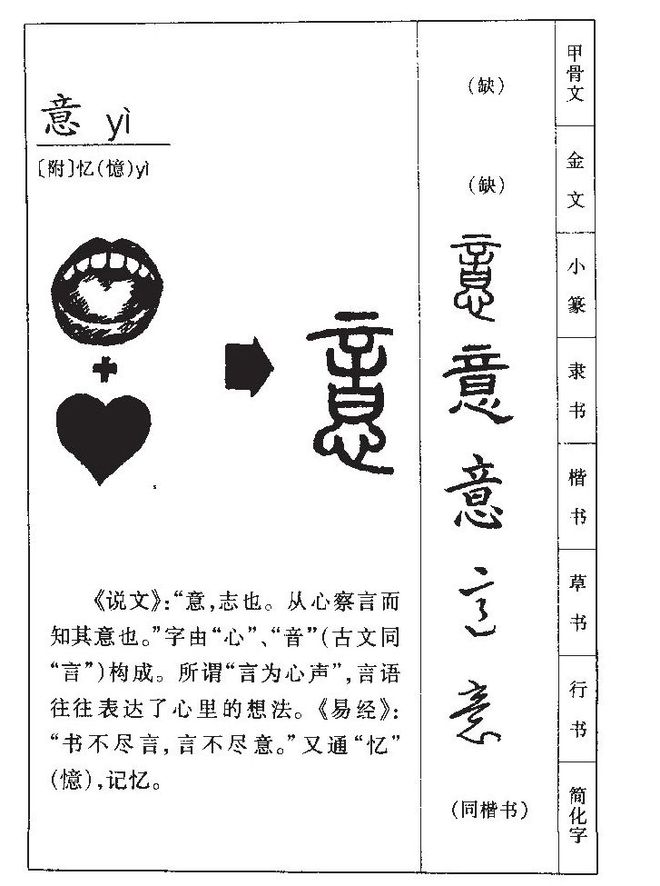 意 yì
〔附〕忆(憶)yì
意
《说文》:“意,志也。从心察言而
知其意也。”字由“心”、“音”(古文同
“言”)构成。所谓“言为心声”,言语
往往表达了心里的想法。《易经》:
“书不尽言,言不尽意。”又通“忆”
(憶),记忆。
(缺) 甲骨文
(缺) 金文
意 小篆
意 隶书
意 楷书
意 草书
意 行书
(同楷书) 简化字